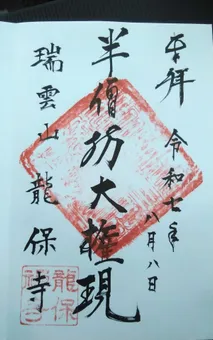 奉拝
令和七年
八月八日
半僧坊大権現
瑞雲山龍保寺